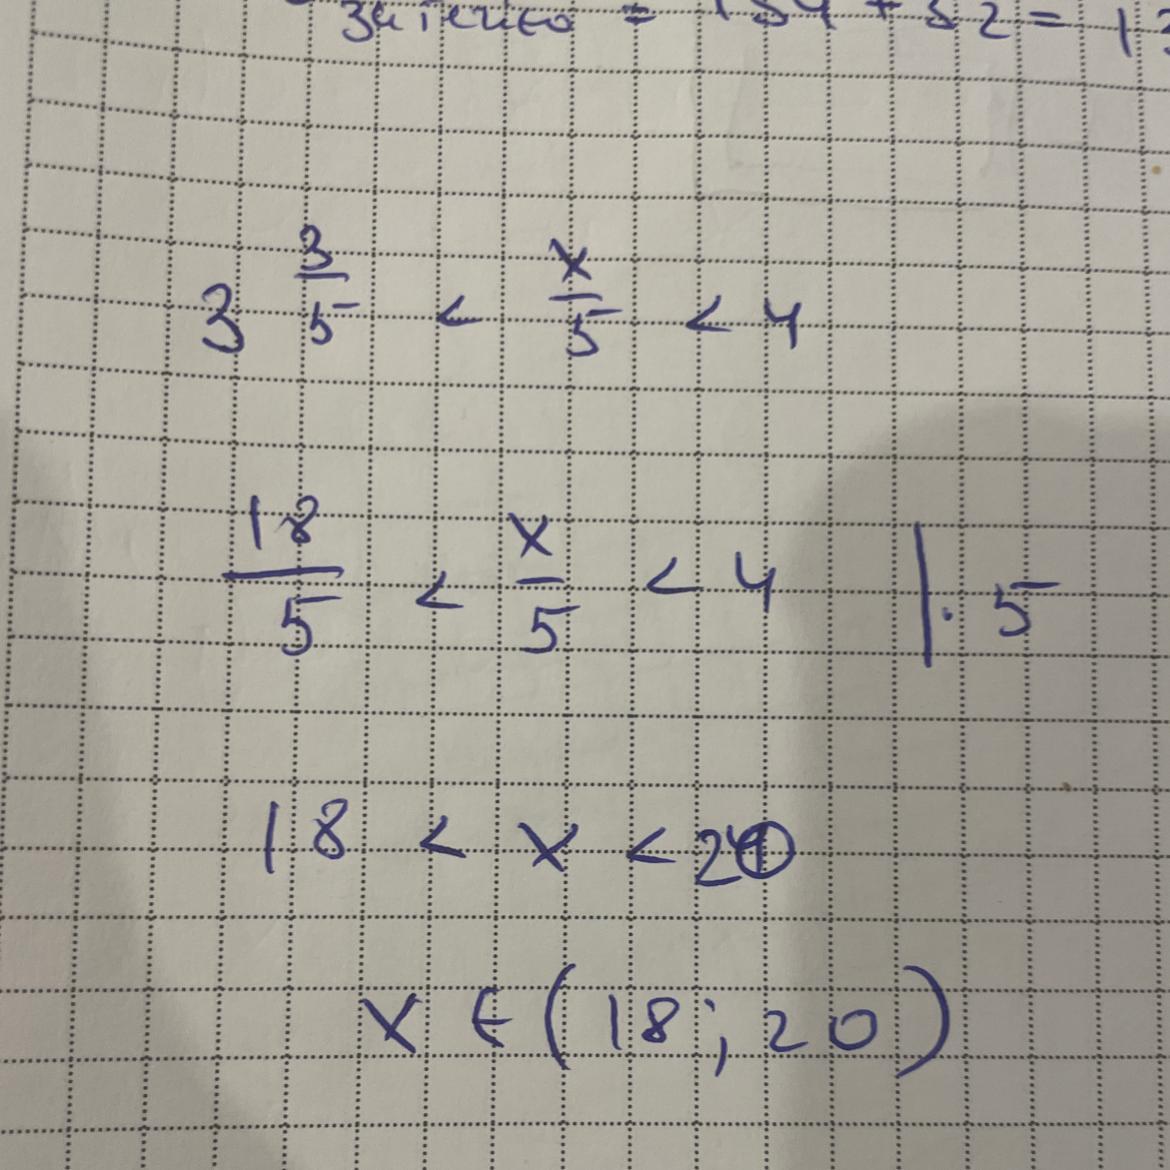 = 154 + 32 =
3 3/5 < x/5 < 4
18/5 < x/5 < 4 | · 5
18 < x < 20
x ∈ (18; 20)